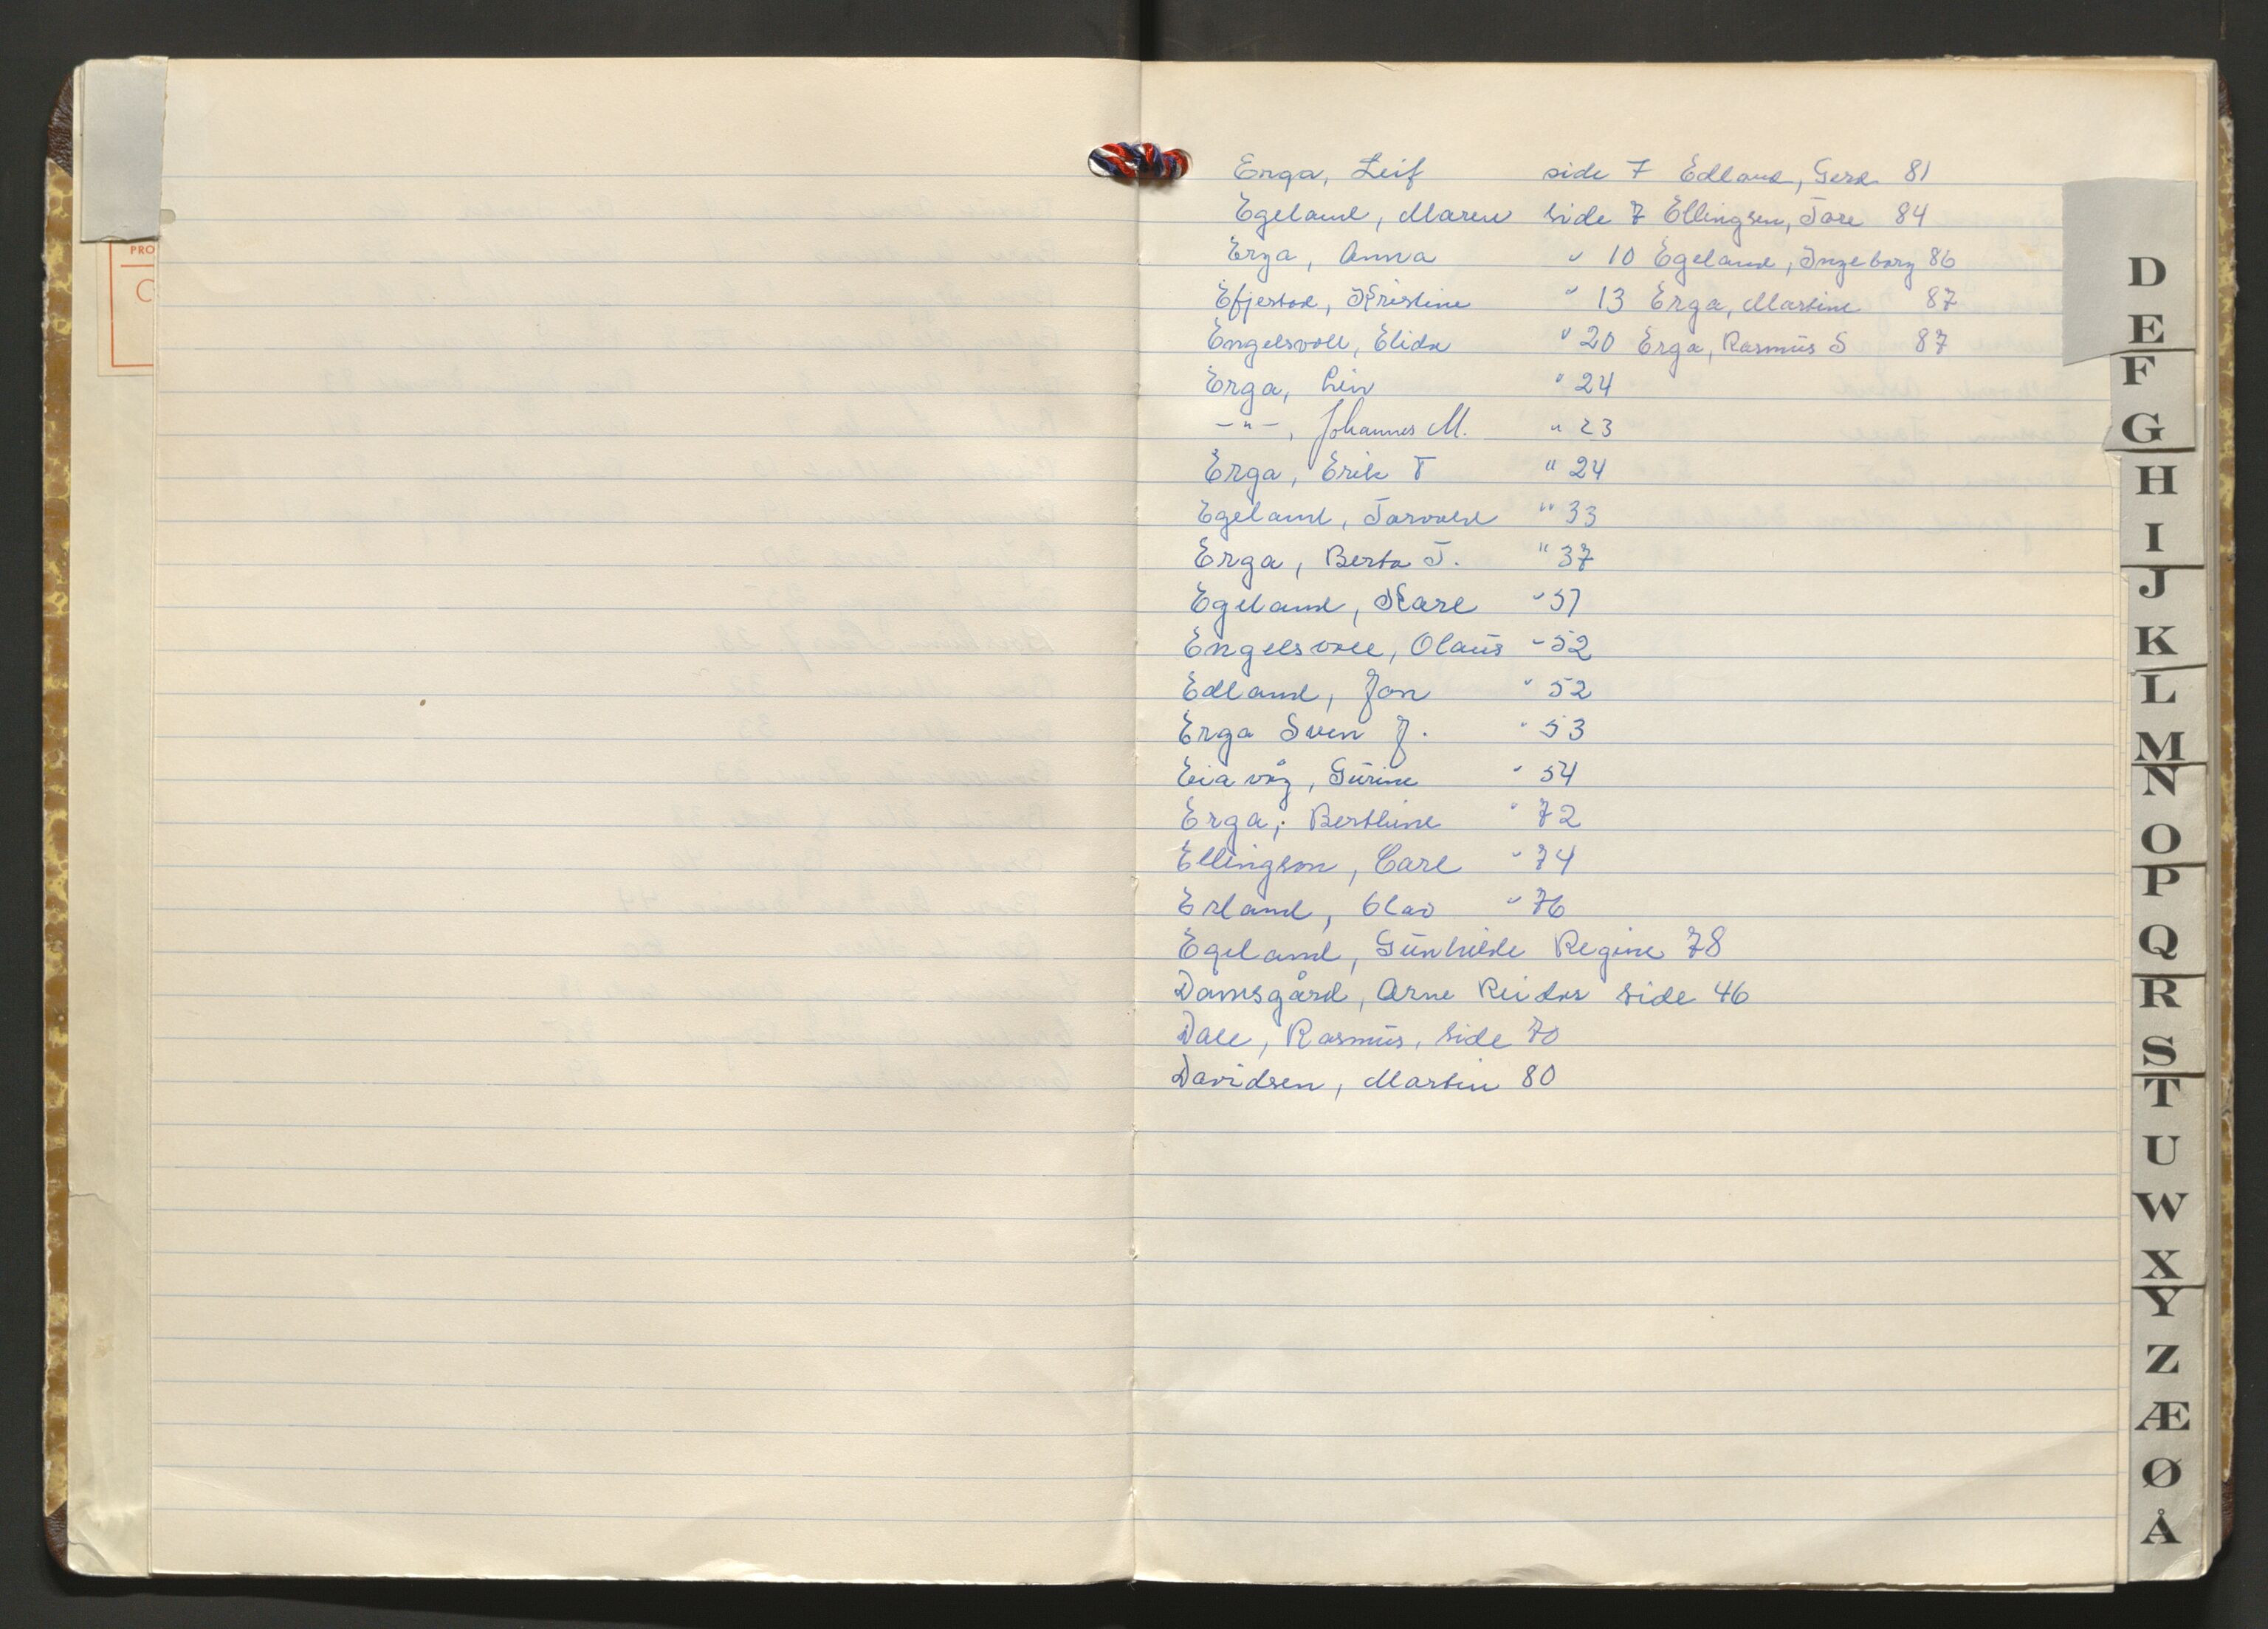 PRO
C
Erga, Leif side 7 Edland, Gerd 81
Egeland, Maren side 7 Ellingsen, Tore 84
Erga, Anna " 10 Egeland, Ingeborg 86
Efjestad, Kristine " 13 Erga, Martine 87
Engelsvoll, Elida " 20 Erga, Rasmus S 87
Erga, Liv " 24
-"-, Johannes M. " 23
Erga, Erik T " 24
Egeland, Torvald " 33
Erga, Berta T. " 37
Egeland, Kare " 51
Engelsvoll, Olaus " 52
Edland, Jon " 52
Erga Sven J. " 53
Eiavåg, Gurine " 54
Erga, Berthine " 72
Ellingson, Carl " 74
Erland, Olav " 76
Egeland, Gunhilde Regine 78
Damsgård, Arne Reidar side 46
Dale, Rasmus, side 70
Davidsen, Martin 80
D
E
F
G
H
I
J
K
L
M
N
O
P
Q
R
S
T
U
W
X
Y
Z
Æ
Ø
Å